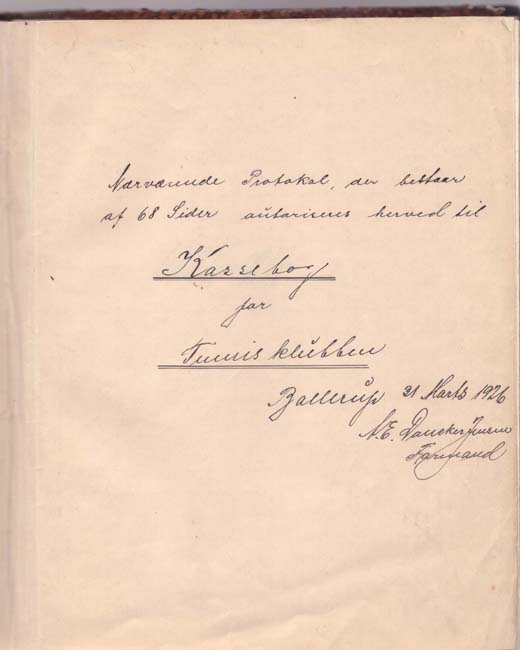 Nærværende Protokol, der bestaar
af 68 Sider autoriseres herved til
Kassebog
for
Tennisklubben
Ballerup 21 Marts 1926
N.E. Dancker Jensen
Formand